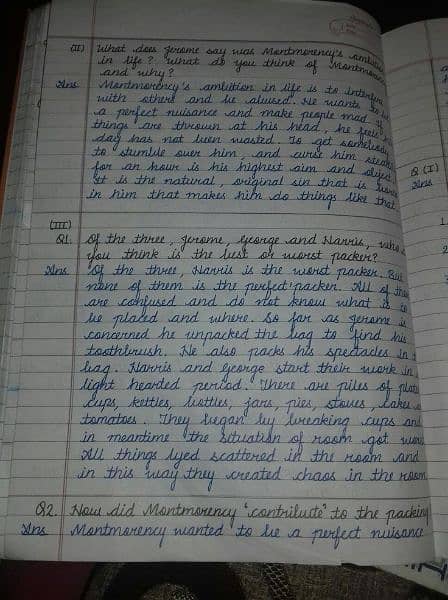 (II) What does Jerome say was Montmorency's
in life? What do you think of
and why?
Ans Montmorency's ambition in life is to
with others and be abused. He wants to
a perfect nuisance and make people mad
things are thrown at his head, he
day has not been wasted. To get somebody
to stumble over him, and curse him
for an hour is his highest aim and
It is the natural, original sin that is
in him that makes him do things like that
(III)
Q1. Of the three, Jerome, George and Harris, who
you think is the best or worst packer?
Ans Of the three, Harris is the worst packer. But
none of them is the perfect packer. All of
are confused and do not know what is to
be placed and where. So far as Jerome is
concerned he unpacked the bag to find his
toothbrush. He also packs his spectacles in
bag. Harris and George start their work in
light hearted period. There are piles of
cups, kettles, bottles, jars, pies, stoves,
tomatoes. They began by breaking cups and
in meantime the situation of room got
All things lyed scattered in the room and
in this way they created chaos in the room
Q2. How did Montmorency "contribute" to the packing
Ans Montmorency wanted to be a perfect nuisance
Q (I)
Ans
1.
2.